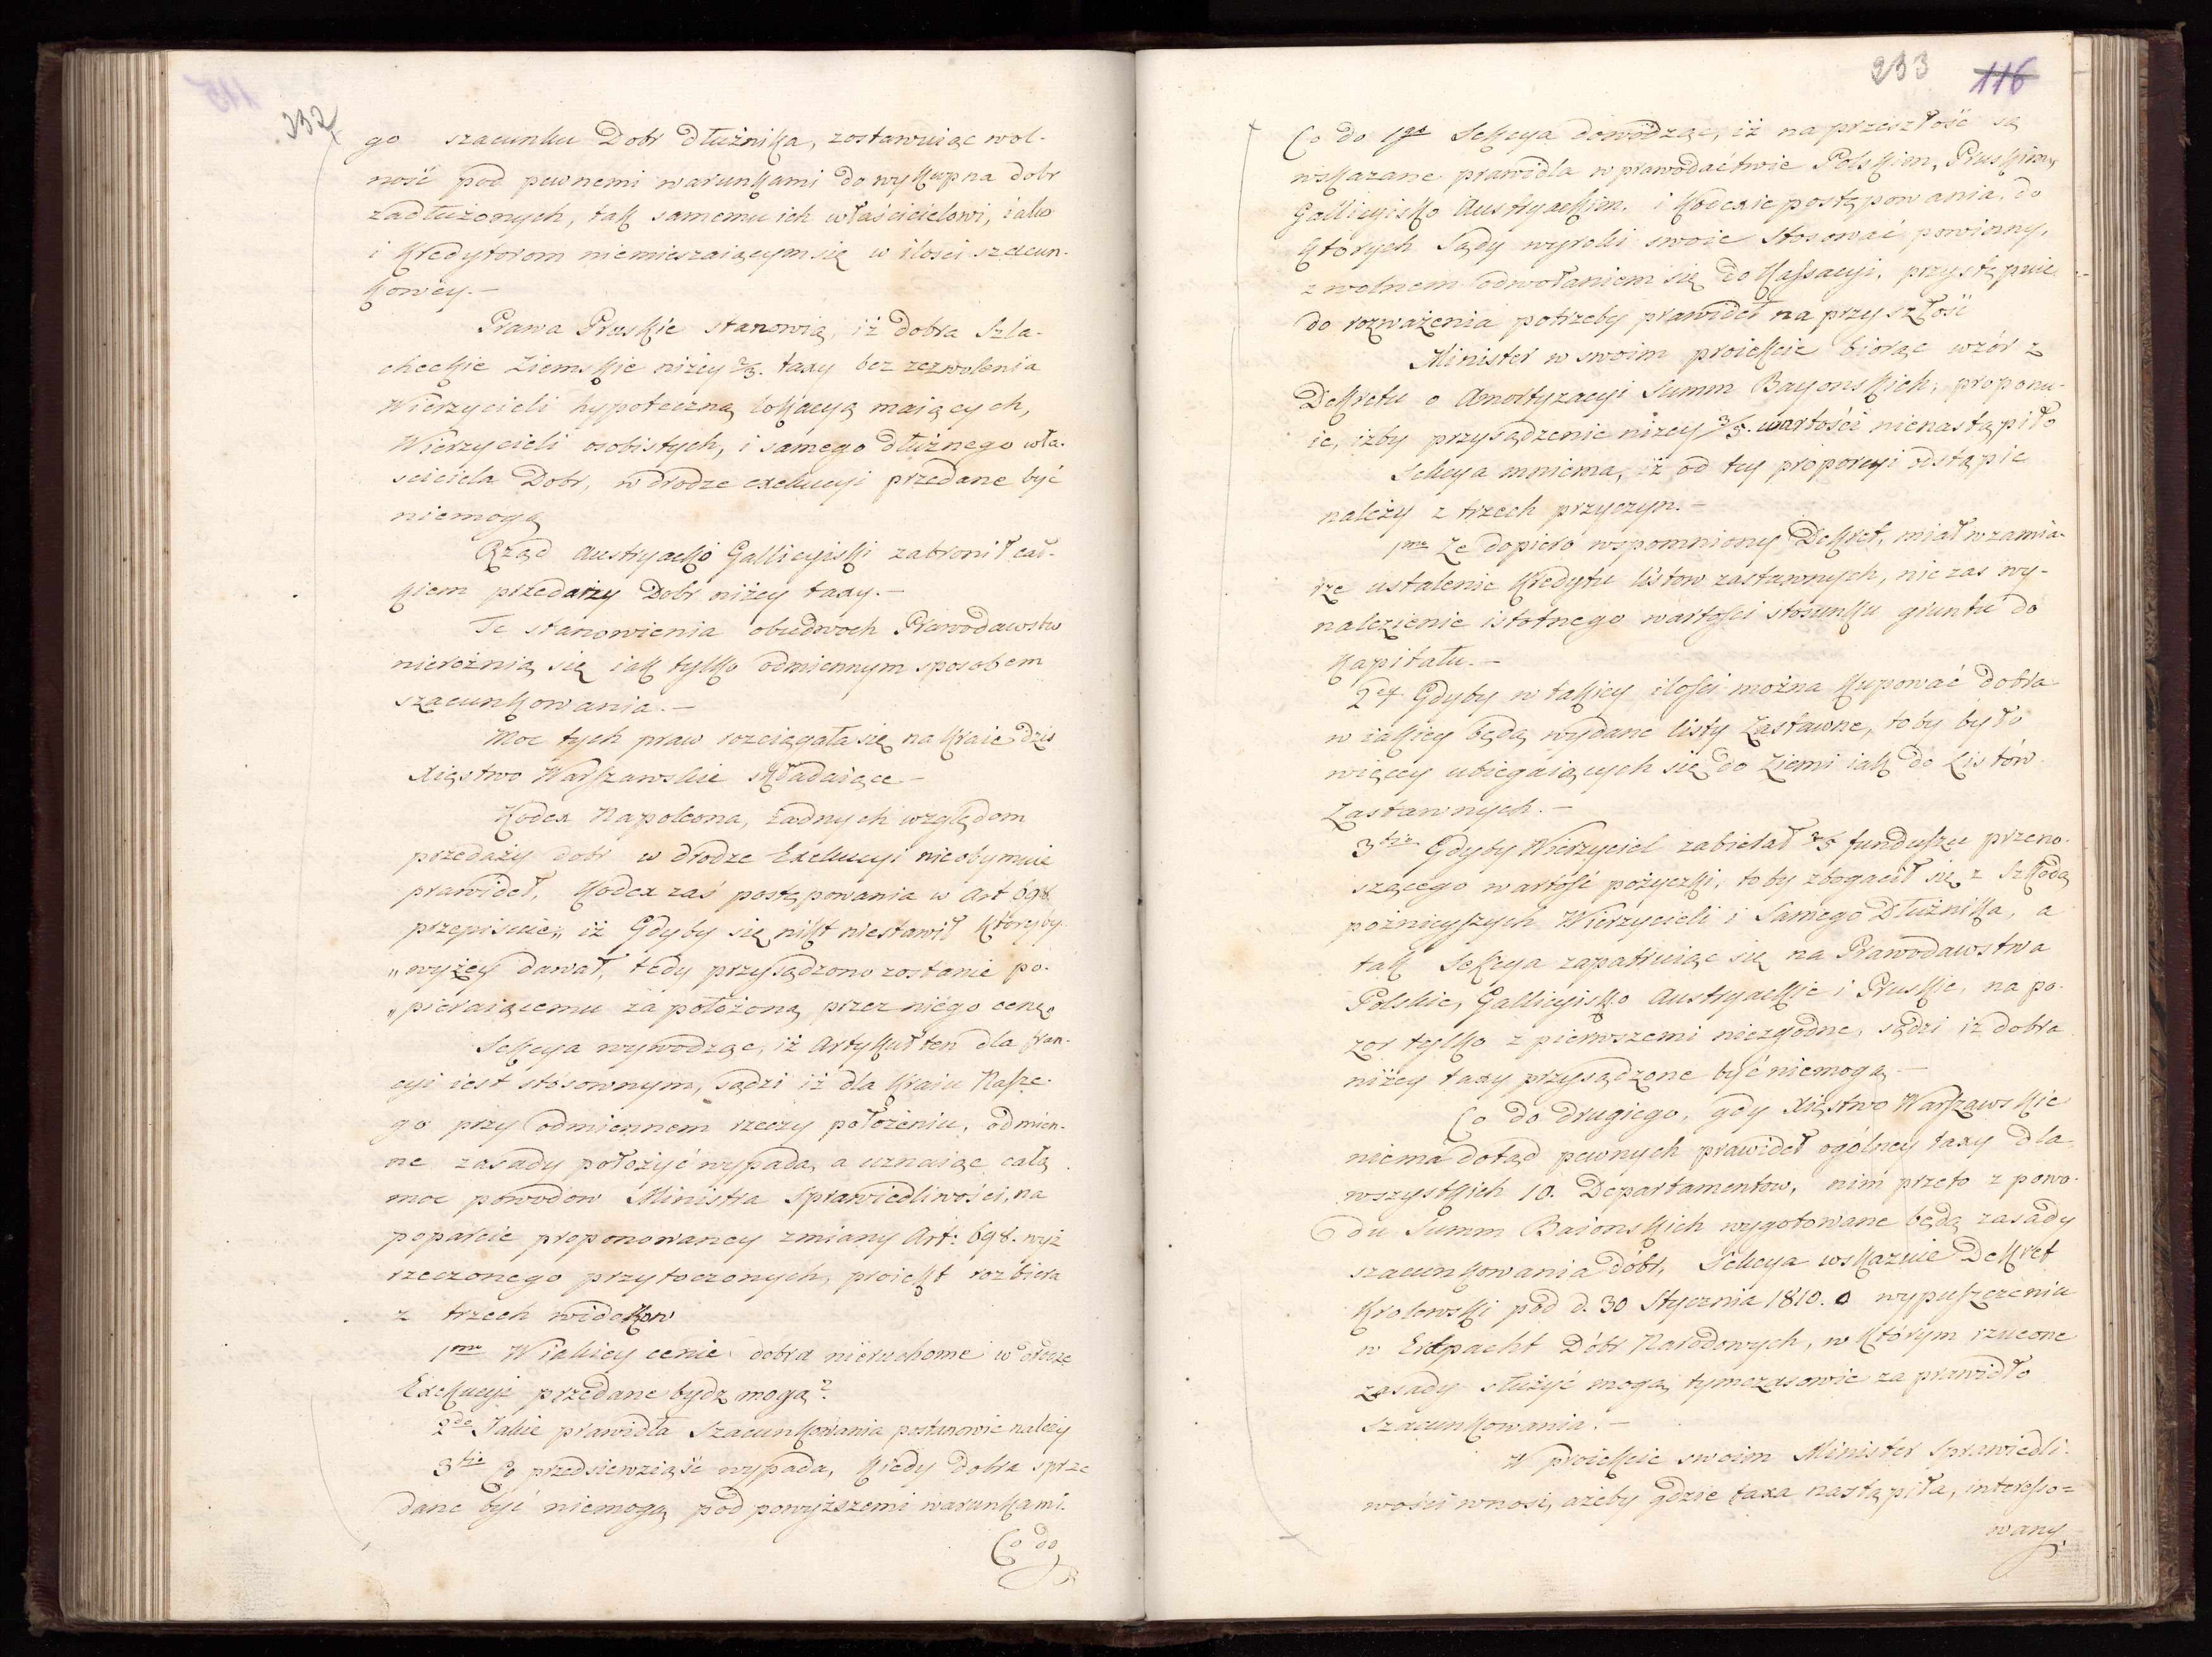 232
go szacunku Dobr Dłużnika, zostawuiąc wol-
ność pod pewnemi warunkami do wykupna dobr
zadłużonych, tak samemu ich właścicielowi, iako
i Kredytorom niemieszaiącym się w ilości szacun-
kowey.-
Prawa Pruskie stanowią, iż dobra Szla-
checkie Ziemskie niżey 2/3. taxy bez zezwolenia
Wierzycieli hypoteczną lokacyą maiących,
Wierzycieli osobistych, i samego dłużnego wła-
sciciela Dobr, w drodze exekucyi przedane być
niemogą
Rząd Austryacko Gallicyiski zabronił cał-
kiem przedarzy Dobr niżey taxy.-
Te stanowienia obudwoch Prawodawstw
nierożnią się iak tylko odmiennym sposobem
szacunkowania.-
Moc tych praw rozciągała się na kraie dziś
Xięstwo Warszawskie składaiące-
Kodex Napoleona, żadnych względem
przedaży dobr w drodze Exekucyi nieobymuie
prawideł, Kodex zaś postępowania w Art 698.
przepisuie,, iż Gdyby się nikt niestawił któryby
,,wyżey dawał, tedy przysądzono zostanie po-
,,pieraiącemu za położoną przez niégo cenę.
Sekcya wywodząc, iż Artykuł ten dla fran-
cyi iest stósownym, sądzi iż dla Kraiu Nasze-
go przy odmiennem rzeczy położeniu, odmien-
ne zasady położyć wypada, a uznaiąc całą
moc powodow Ministra Sprawiedliwości, na
poparcie proponowaney zmiany Art: 698. wyż
rzeczonego przytoczonych, proiekt rozbiera
z trzech widokow
1mo W iakiey cenie dobra nieruchome w drodze
Exekucyi przedane bydz mogą?
2do Jakie prawidła Szacunkowania postanowić należy
3tio Co przedsiewziąść wypada, kiedy Dobra sprze
dane być niemogą pod powyższemi warunkami.
Co do
233 116
Co do 1go Sekcya dowodząc, iż na przeszłość są
wskazane prawidła w prawodaćtwie Polskiem, Pruskiem,
Gallicyisko Austryackiem, i Kodexie postępowania, do
których Sądy wyroki swoie stosować powinny,
z wolnem odwołaniem się do Kassacyi, przystępuie
do rozważenia potrzeby prawideł na przyszłość
Minister w swoim proiekcie biorąc wzór z
Dekretu o Amortyzacyi Summ Bayonskich, proponu-
ie, iżby przysądzenie niżey 3/5. wartości nienastąpiło
Sekcya mniema, iż od tey proporcyi odstąpić
należy z trzech przyczyn.-
1mo Że dopiero wspomniony Dekret, miał w zamia-
rze ustalenie Kredytu listow zastawnych, nie zas wy-
nalezienie istotnego wartości stosunku gruntu do
Kapitału.-
2do Gdyby w takiey ilości można kupować dobra
w iakiey będą wydane listy Zastawne, toby było
więcey ubiegaiących się do Ziemi iak do Listów
Zastawnych.-
3tio Gdyby Wierzyciel zabierał 3/5 funduszu przeno-
szącego wartość pożyczki, toby zbogacił się z Szkodą
poźnieyszych Wierzycieli i Samego Dłużnika, a
tak Sekcya zapatruiąc się na Prawodawstwa
Polskie, Gallicyisko Austryackie i Pruskie, na po-
zor tylko z pierwszemi niezgodne, sądzi iż dobra
niżey taxy przysądzone być niemogą-
Co do drugiego, gdy Xięstwo Warszawskie
niema dotąd pewnych prawideł ogólney taxy dla
wszystkich 10. Departamentow, nim przeto z powo-
du Summ Baionskich wygotowane będą zasady
szacunkowania dóbr, Sekcya wskazuie Dekret
Krolewski pod d. 30 Stycznia 1810. o wypuszczeniu
w Erbpacht Dóbr Narodowych, w którym rzucone
zasady służyć mogą tymczasowie za prawidło
szacunkowania.-
W proiekcie swoim Minister Sprawiedli-
wości wnosi, ażeby gdzie taxa nastąpiła, interesso=
wany,